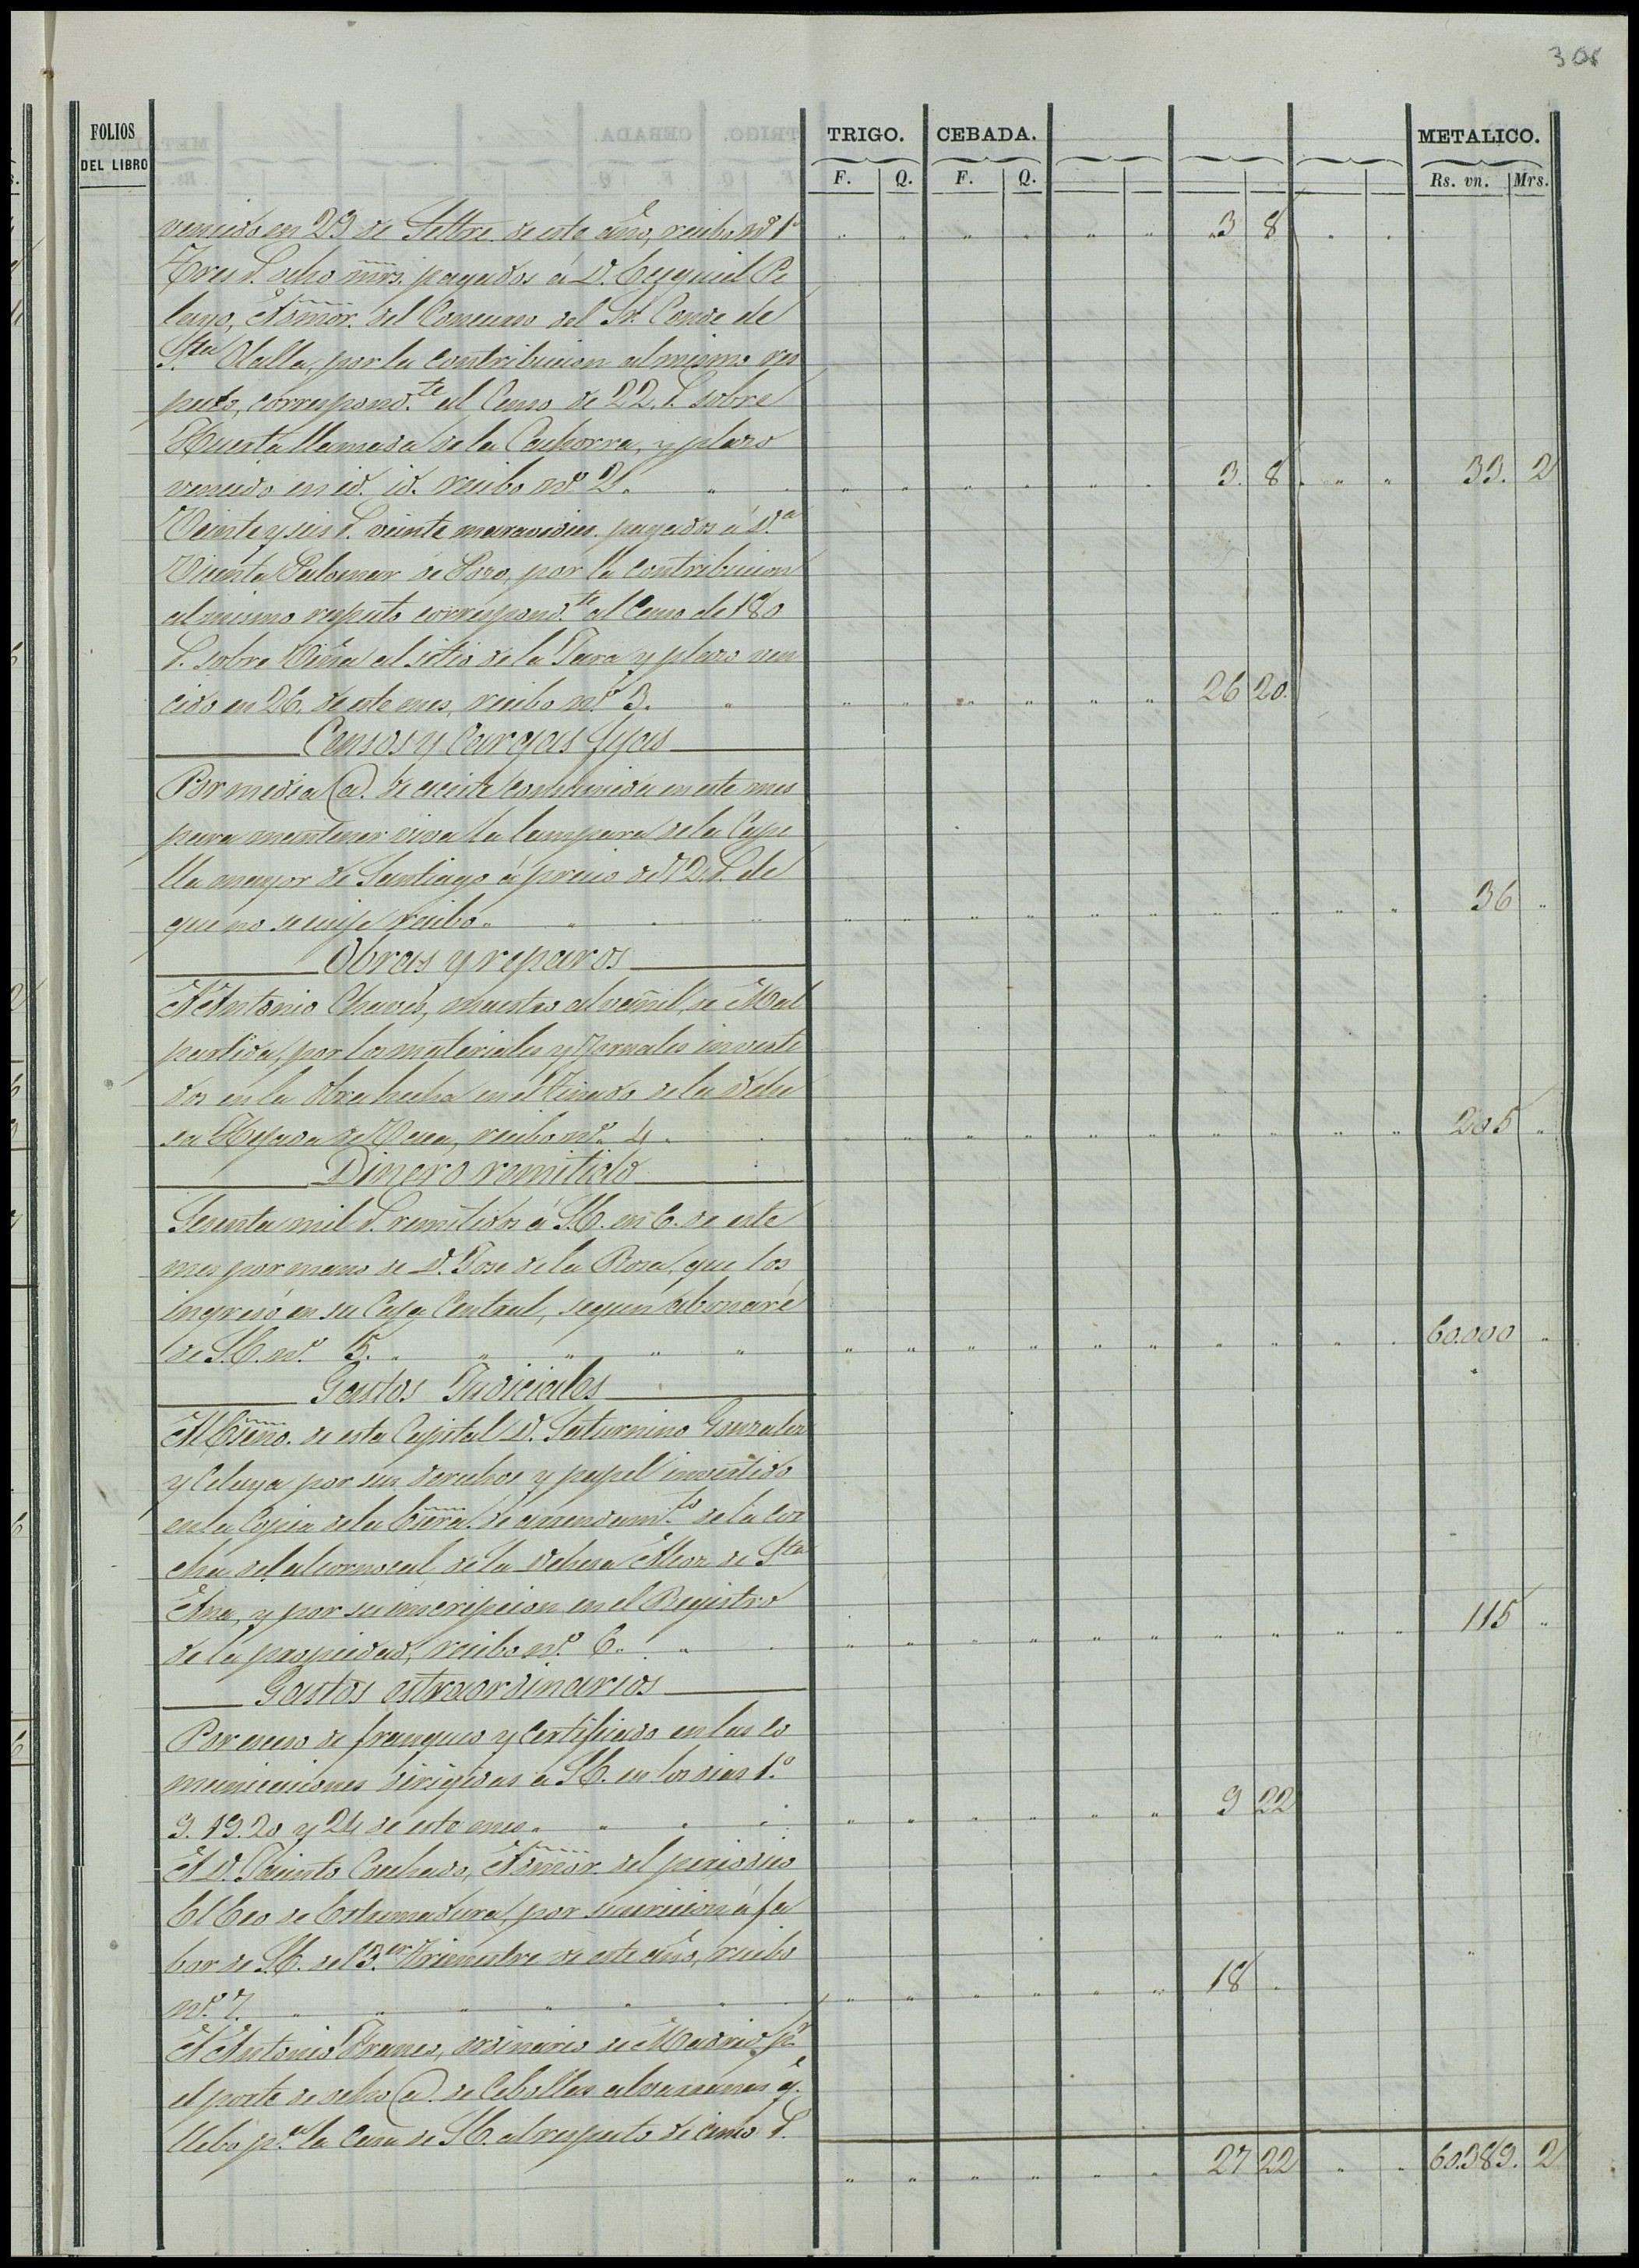 308
FOLIOS
DEL LIBRO
TRIGO. CEBADA. METALICO.
F. Q. F. Q. Rs. vn. Mrs.
vencido en 29 de Setbre. de este año, recibo nº 1º 3 8
Tres r. ocho mrs. pagados á D. Ezequiel Pe
layo, Admor. del Concurso del Sr. Conde de
Sta. Olalla, por la contribucion al mismo res
pecto, correspond.te al Censo de 22. r. sobre
Huerta llamada de la Cachorra, y plazo
vencido en id. id. recibo nº 2. 3. 8 33. 2
Veinte y seis r. veinte maravedises pagados á D.a
Vicenta Palomar de Pozo, por la contribucion
al mismo respecto correspond.te al Censo de 180
r. sobre Viña al sitio de la Jara y plazo ven
cido en 26. de este mes, recibo nº 3. 26 20.
Censos y Cargas fijas
Por media @. de aceite consumida en este mes
para mantener viva la lampara de la Cape
lla mayor de Santiago á precio de 72. r. de
que no se exije recibo. 36
Obras y reparos
A Antonio Chaves, maestro alvañil, de Mal
partida, por los materiales y jornales inverti
dos en la obra hecha en el Tinado de la dehe
sa Hijada de Vaca, recibo nº. 4. 205
Dinero remitido
Sesenta mil r. remitidos á S.E. en 6. de este
mes por mano de D. Jose de la Rosa, que los
ingresó en su Caja Central, segun abonaré
de S.E. nº. 5. 60.000
Gastos Judiciales
Al Esno. de esta Capital D. Saturnino Gonzalez
y Celaya por sus derechos y papel invertido
en la Copia de la Esra. de arrendam.to de la cor
cha del alcornocal de la dehesa Alcor de Sta
Ana, y por su inscripcion en el Registro
de la propiedad, recibo nº. 6. 115
Gastos estraordinarios
Por exceso de franqueo y certificado en las co
municaciones dirigidas á S.E. en los dias 1.º
9. 19. 20 y 24 de este mes 9 22
A D. Jacinto Cachado, Admor. del periodico
El Eco de Estremadura, por suscricion á fa
bor de S.E. del 3.er Trimestre de este año, recibo
nº. 7. 18
A Antonio Franco, ordinario de Madrid, pr
el porte de ocho @. de Cebollas albarranas q.
llebó p.a la Casa de S.E. al respecto de cinco r.
27 22 60.389. 2